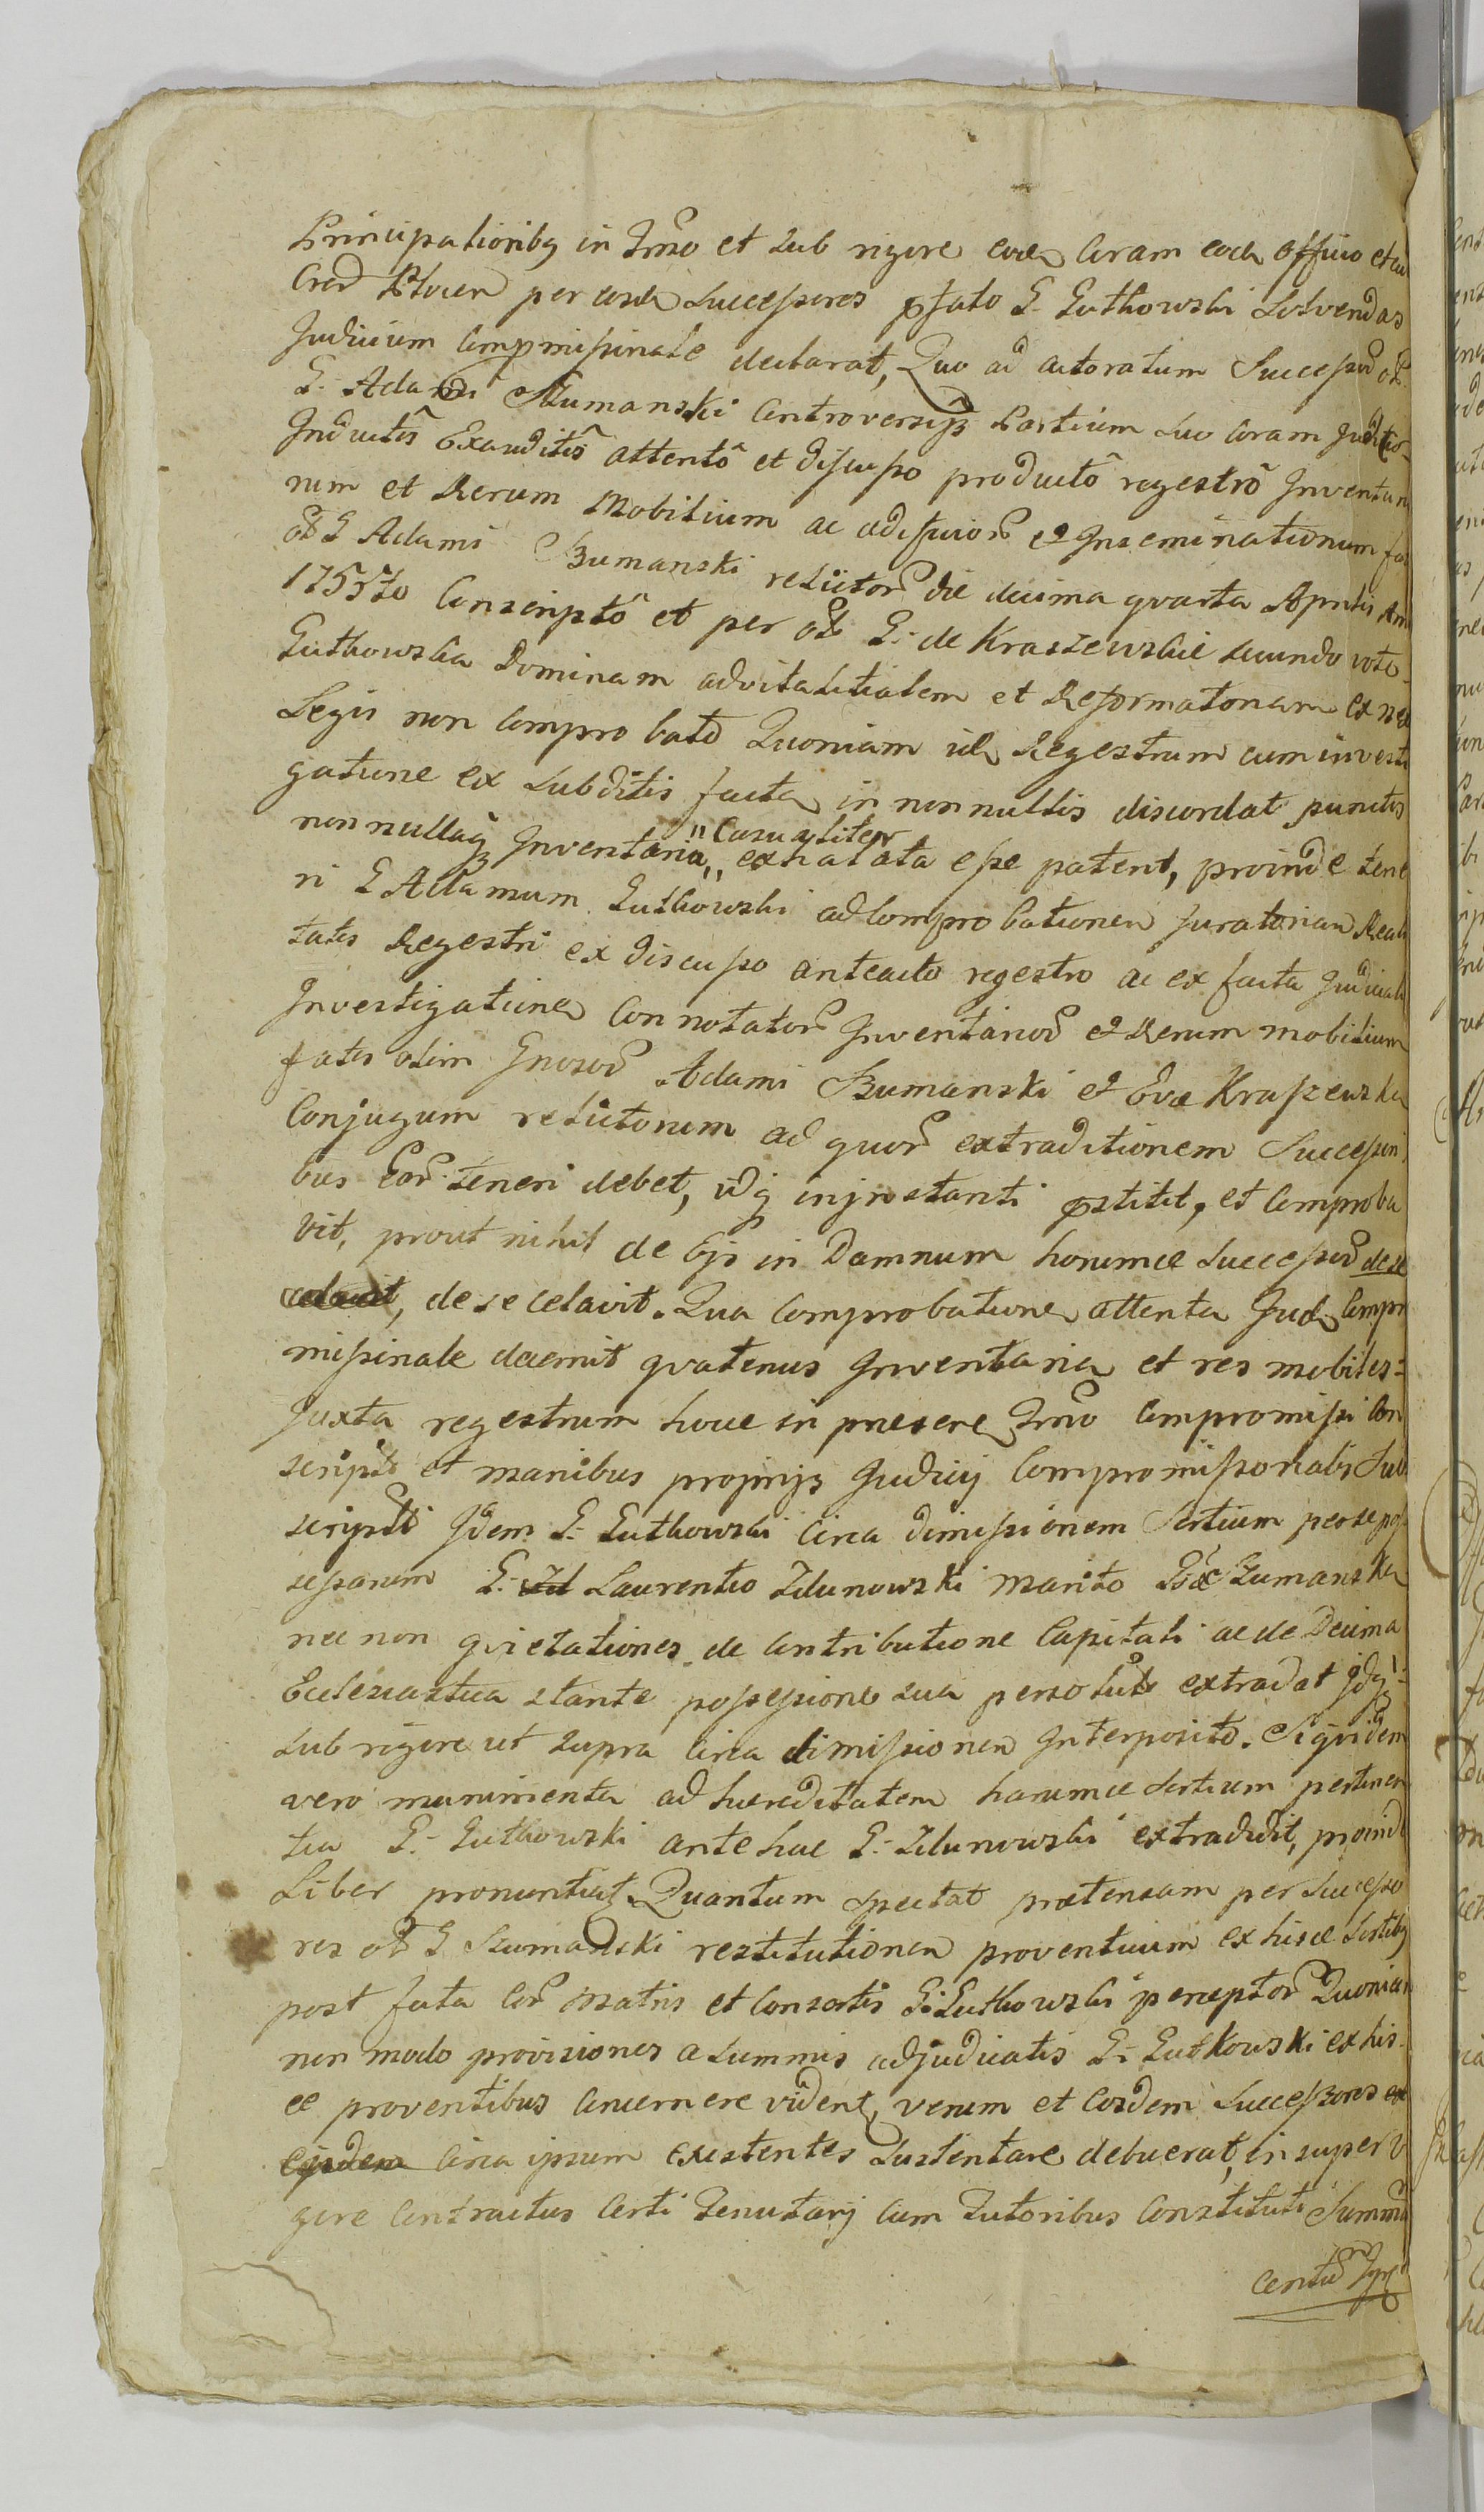 Principationibq in Trno et sub rigore eode Coram eode Officio et in
Crod Plocen per eosde Successores pfato G. Gutkowski Solvendas
Judicium Compmissinale declarat, Quo ad actoratum Successoꝝ ol.
G. Adami Szumanski Controversijs Partium suo Coram Judicio
Inductis Exauditis attento et discusso producto regestro Inventario
rum et Rerum Mobilium ac aedificioꝝ et Inseminationum
ol G Adami Szumanski relictoꝝ die decima qvarta Aprilis Ann
1755to Conscripto et per ol G. de Kraszewskie secundo voto
Gutkowska Dominam advitalitialem et Reformatoriam ex nex
Legis non Comprobato Quoniam id Regestrum cum investi
gatione ex subditis facta in nonnullis discordat punctis
nonnullaq Inventaria "Casualiter" exhalata esse patent, proinde tene
ri G Adamum Gutkowski ad Comprobationem juratoriam Reali
tatis Regestri ex discusso anteacto regestro ac ex facta Judiciali
Investigatione Connotatoꝝ Inventarioꝝ et Rerum mobilium
fatis olim Gnosoꝝ Adami Szumanski et Evae Kraszewska
Conjugum relictorum ad quoꝝ extraditionem Successori
bus Eoꝝ teneri debet, idq injnstanti pstitit, et Comproba
vit, prout nihil de Ejs in Damnum horumce Successoꝝ de se
celavit, de se celavit. Qua Comprobatione attenta Jud Compro
missinale decernit qvatenus Inventaria et res mobiles
Juxta regestrum hocce in praesere Trno Compromissi Con
scripto et manibus proprijs Judicij Compromissorialis Sub
scripto Idem G. Gutkowski Circa dimissionem Sortium per se pos
sessarum G. Zd Laurentio Zdunowski marito Gsae Szumanska
nec non qvietationes de Contributione Capitali ac de Decima
Ecclesiastica stante possessione sua persoluto extradat idq
sub rigore ut supra Circa dimissionem Interposito. Siqvidem
vero munimenta ad haereditatem harumce Sortium pertinen
tia G. Gutkowski ante hac G. Zdunowski extradidit, proinde
Liber pronuntiat. Quantum spectat praetensam per Successo
res ol G Szumanski restitutionem proventuum ex hisce Sortibq
post fata Eoꝝ Matris et Consortis G. Gutkowski perceptoꝝ Quoniam
non modo provisiones a summis adjudicatis G. Gutkowski ex his
ce proventibus Concernere vident, verum et Eosdem Successores
ejsdem Circa ipsum existentes sustentare debuerat, in super vi
gore Contractus Certi Tenutarij Cum Tutoribus Constituti Summa
Centu